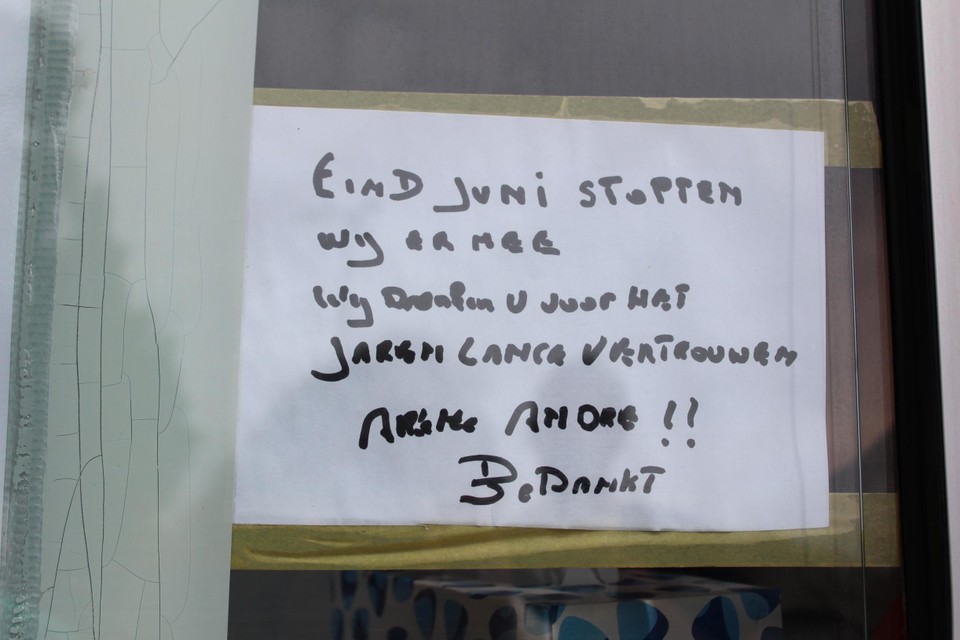 EIND JUNI STOPPEN
WIJ ER MEE
WIJ DANKEN U VOOR HET
JARENLANGE VERTROUWEN
ANDRE !!
BEDANKT